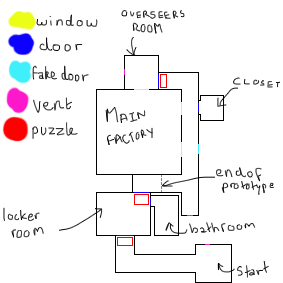 window
door
fake door
vent
puzzle
OVERSEERS
ROOM
MAIN
FACTORY
CLOSET
end of
prototype
locker
room
bathroom
Start